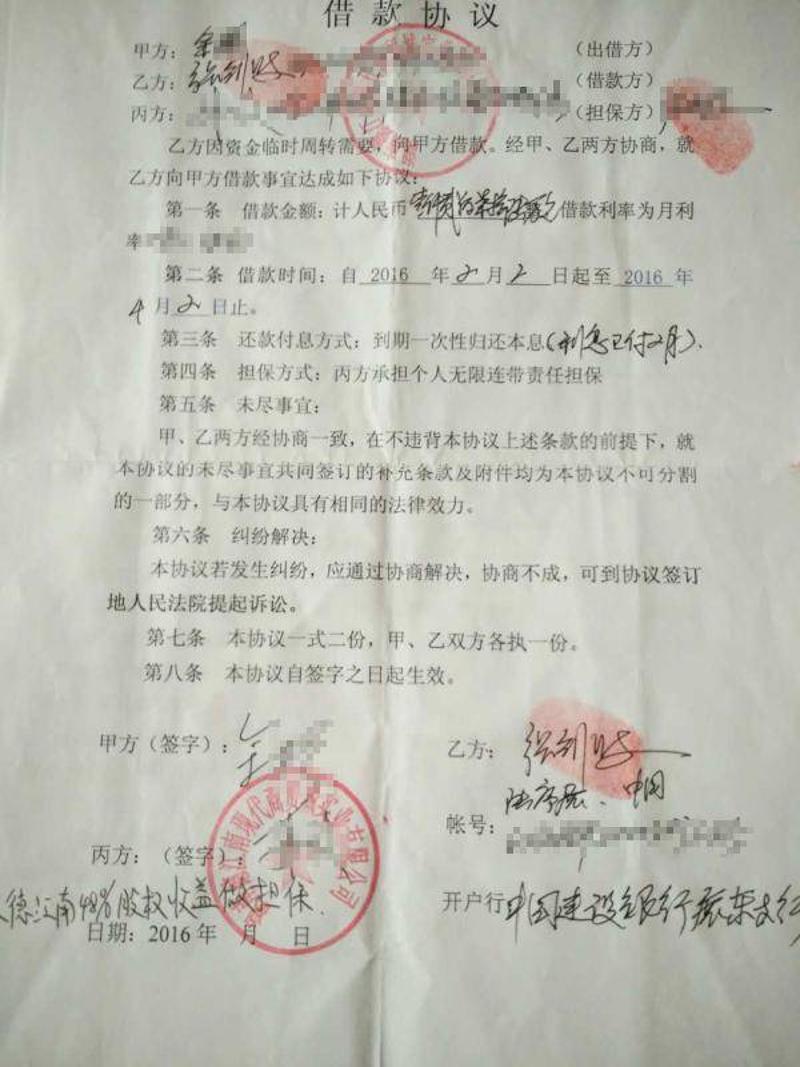 借款协议
甲方：金 （出借方）
乙方：张剑 （借款方）
丙方： （担保方）
乙方因资金临时周转需要，向甲方借款。经甲、乙两方协商，就
乙方向甲方借款事宜达成如下协议：
第一条 借款金额：计人民币 借款利率为月利
率
第二条 借款时间：自 2016 年 2 月 2 日起至 2016 年
4 月 2 日止。
第三条 还款付息方式：到期一次性归还本息（利息已付2月）。
第四条 担保方式：丙方承担个人无限连带责任担保
第五条 未尽事宜：
甲、乙两方经协商一致，在不违背本协议上述条款的前提下，就
本协议的未尽事宜共同签订的补充条款及附件均为本协议不可分割
的一部分，与本协议具有相同的法律效力。
第六条 纠纷解决：
本协议若发生纠纷，应通过协商解决，协商不成，可到协议签订
地人民法院提起诉讼。
第七条 本协议一式二份，甲、乙双方各执一份。
第八条 本协议自签字之日起生效。
甲方（签字）：金
乙方：张剑
帐号：
丙方：（签字）：
江南现代商贸 实业有限公司
德江南48%股权收益做担保
开户行中国建设银行振东支行
日期：2016年 月 日